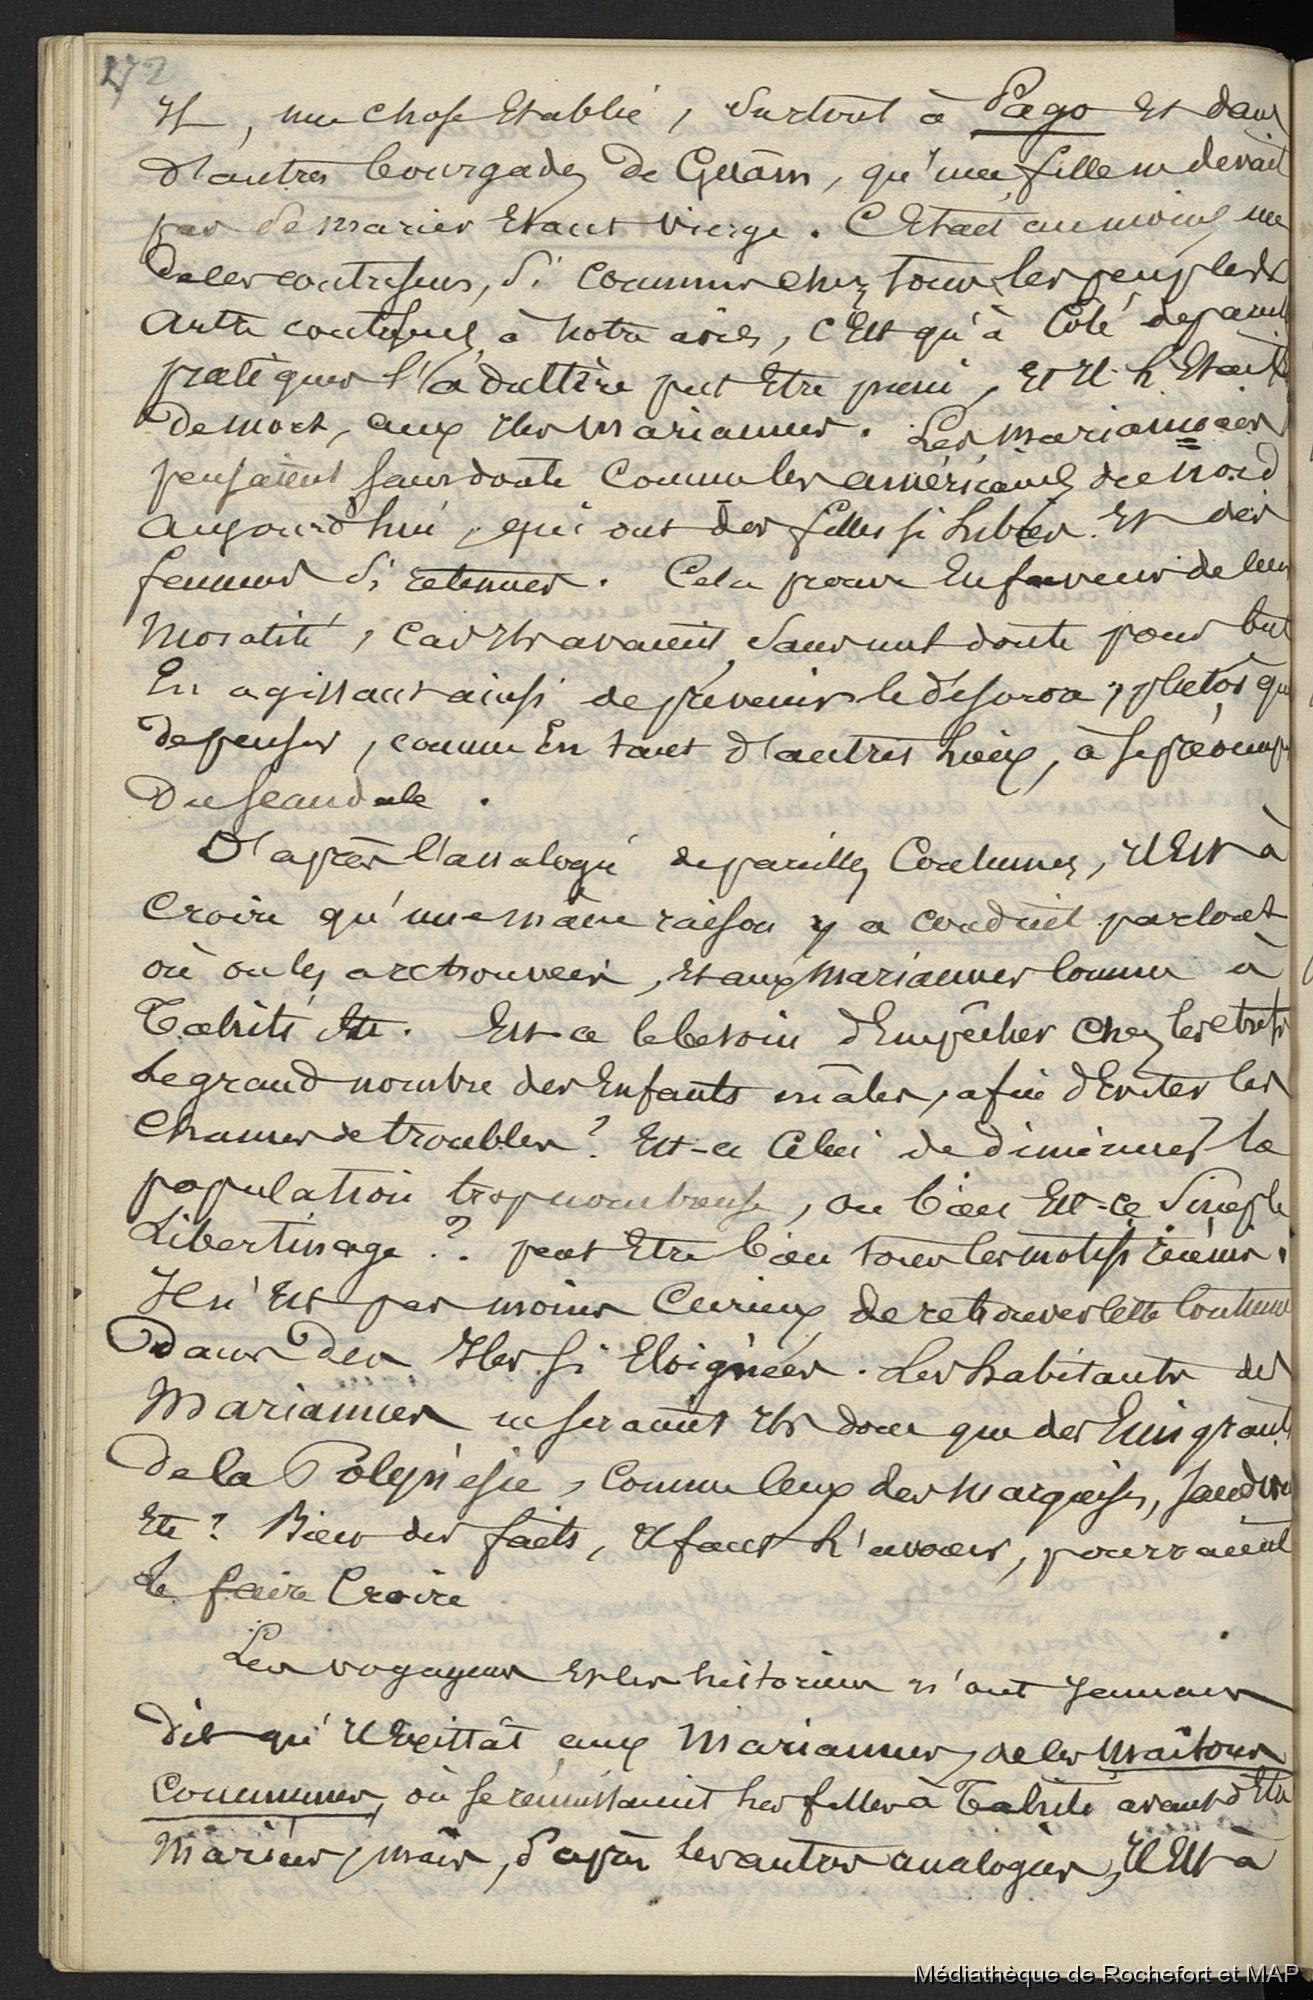 272
et, une chose établie, surtout à Pago et dans
d'autres bourgades de Guam, qu'une fille ne devait
pas se marier étant vierge. C'était au moins une
de ces coutumes, si communes chez tous les peuples
cette coutume, à notre avis, c'est qu'à côté de pareilles
pratiques l'adultère put être puni, et il l'était
de mort, aux Iles Mariannes. Les mariannais
pensaient sans doute comme les américains du nord
aujourd'hui, qui ont des filles si libres et des
femmes si retenues. Cela prouve en faveur de leur
moralité, car ils avaient sans nul doute pour but
en agissant ainsi de prévenir le désordre, plutôt que
de penser, comme en tant d'autres lieux, à se préoccuper
du scandale.
D'après l'analogie de pareilles coutumes, il est à
croire qu'une même raison y a conduit partout
où on les a retrouvées, et aux Mariannes comme à
Tahiti etc. Est-ce le besoin d'empêcher chez les
le grand nombre des enfants mâles, afin d'éviter les
chances de troubles? Est-ce celui de diminuer la
population trop nombreuse, ou bien est-ce simple
libertinage?. peut être bien tous les motifs réunis.
Il n'est pas moins curieux de retrouver cette coutume
dans des Iles si éloignées. Les habitants des
Mariannes ne seraient ils donc que des émigrants
de la Polynésie, comme ceux des marquises, Sandwich
etc? Bien des faits, il faut l'avouer, pourraient
le faire croire
Les voyageurs et les historiens n'ont jamais
dit qu'il existât aux Mariannes, de ces maisons
communes, où se réunissaient les filles à Tahiti avant d'être
mariées, mais, d'après les autres analogies, il est à
Médiathèque de Rochefort et MAP